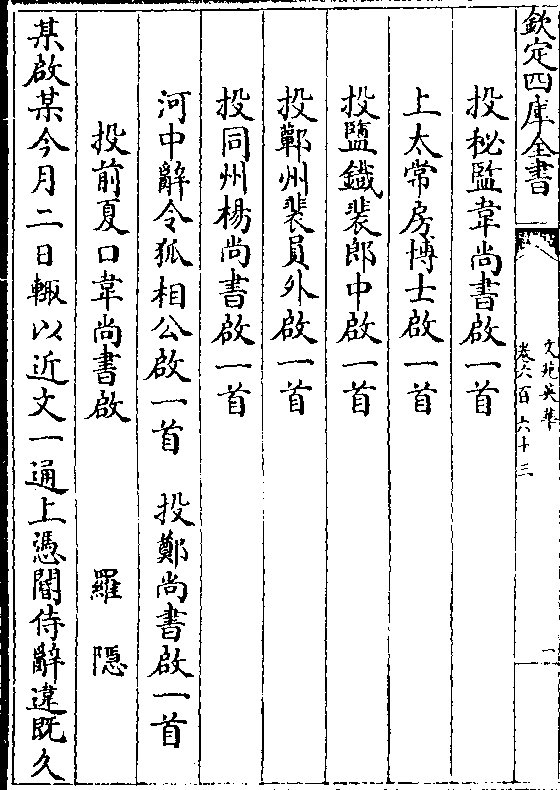 欽定四庫全書
文苑英華
卷六百六十三
一
投秘監韋尚書啟一首
上太常房博士啟一首
投鹽鐡裴郎中啟一首
投鄆州裴員外啟一首
投同州楊尚書啟一首
河中辭令狐相公啟一首　投鄭尚書啟一首
投前夏口韋尚書啟　羅隠
某啟某今月二日輙以近文一通上憑閽侍辭違既久